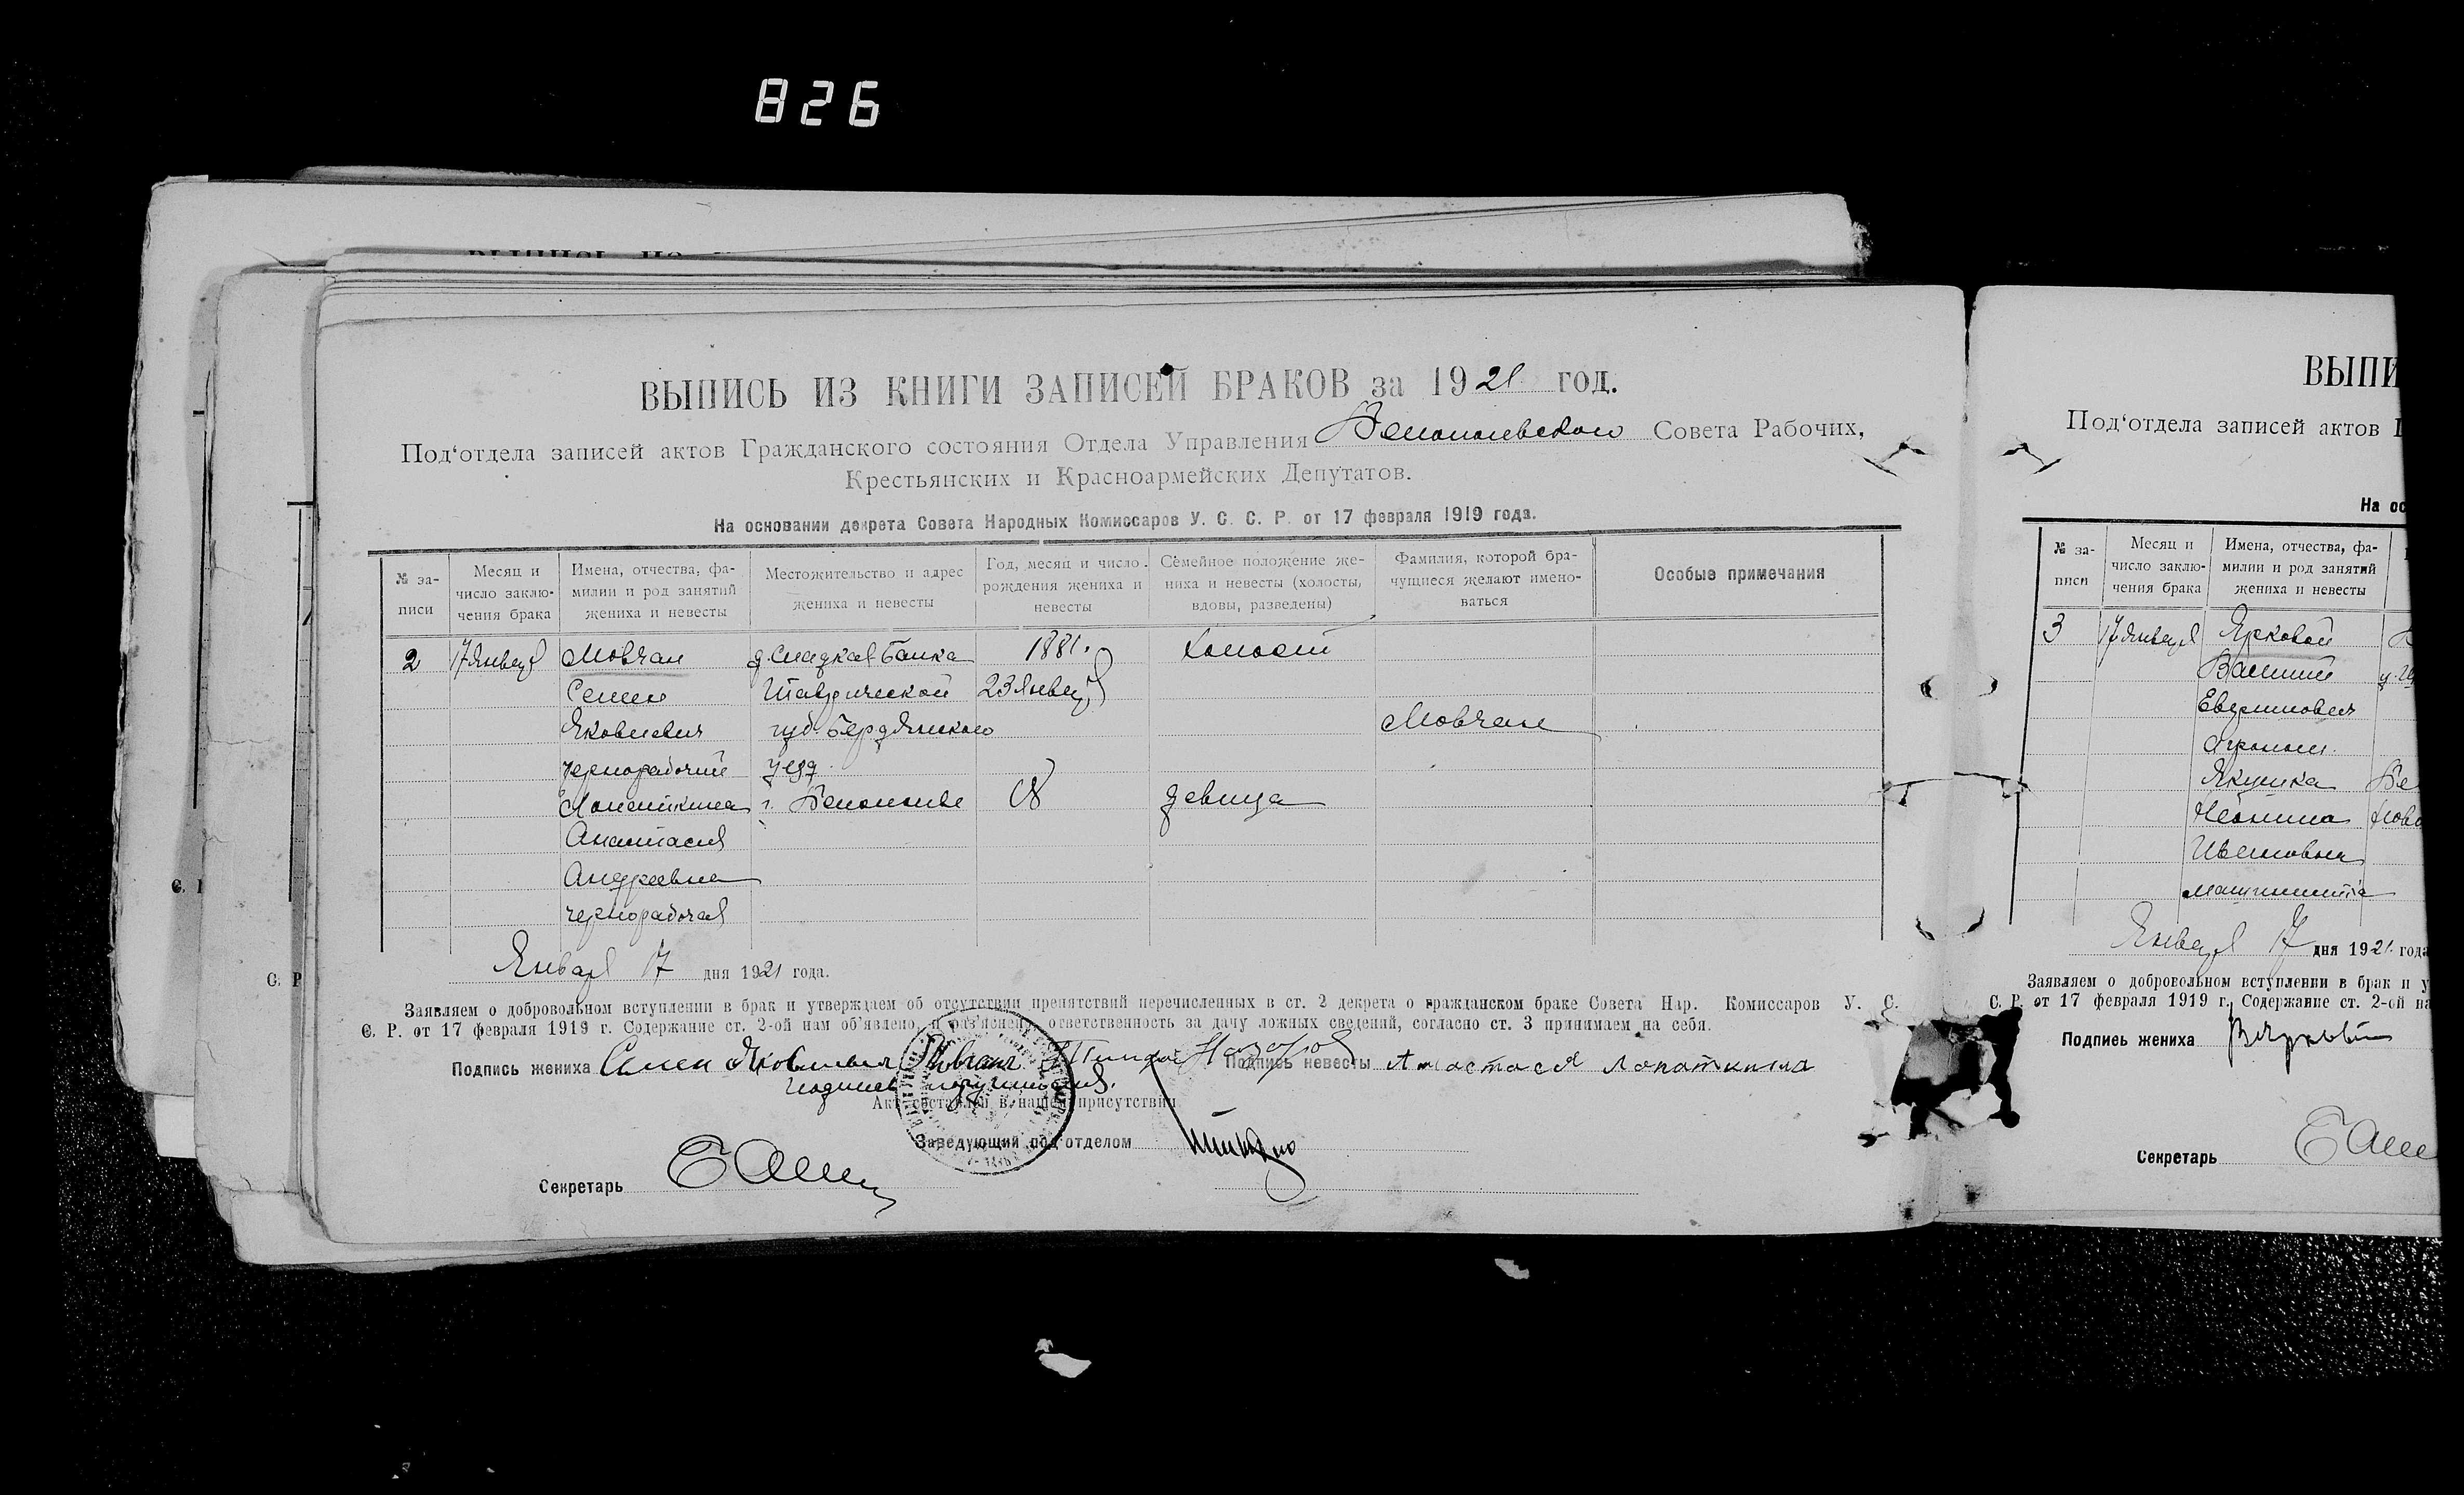 826
ВЫПИСЬ ИЗ КНИГИ ЗАПИСЕЙ БРАКОВ за 1921 год.
Под‘отдела записей актов Гражданского состояния Отдела Управления Совета Рабочих,
Крестьянских и Красноармейских Депутатов.
На основании декрета Совета Народных Комиссаров У. С. С. Р. от 17 февраля 1919 года.
№ записи
Месяц и число заключения брака
Имена, отчества, фамилии и род занятий жениха и невесты
Местожительство и адрес жениха и невесты
Год, месяц и число рождения жениха и невесты
Семейное положение жениха и невесты (холосты, вдовы, разведены)
Фамилия, которой брачущиеся желают именоваться
Особые примечания
2 17 января Мовчан д. Сладкая Балка 1881. холост
Семен Таврической 23 января
Яковлевич губ. Бердянского Мовчан
чернорабочий уезд.
Лопаткина г. девица
Анастасия
Андреевна
чернорабочая
Января 17 дня 1921 года.
Заявляем о добровольном вступлении в брак и утверждаем об отсутствии препятствий перечисленных в ст. 2 декрета о гражданском браке Совета Нар. Комиссаров У. С.
С. Р. от 17 февраля 1919 г. Содержание ст. 2-ой нам об’явлено, и раз’яснено, ответственность за дачу ложных сведений, согласно ст. 3 принимаем на себя.
Подпись жениха Семен Яковлевич Мовчан Назаров Подпись невесты Анастася Лопаткина
Акт составлен в нашем присутствии
Заведующий под‘отделом
Секретарь
ВЫПИ
Под‘отдела записей актов Г
На ос
№ записи
Месяц и число заключения брака
Имена, отчества, фамилии и род занятий жениха и невесты
3 17 января Ярковой
Василий
агроном.
Якушка
Ивановна
машинистка
Января 17 дня 1921 года
Заявляем о добровольном вступлении в брак и у
С. Р. от 17 февраля 1919 г. Содержание ст. 2-ой на
Подпись жениха
Секретарь